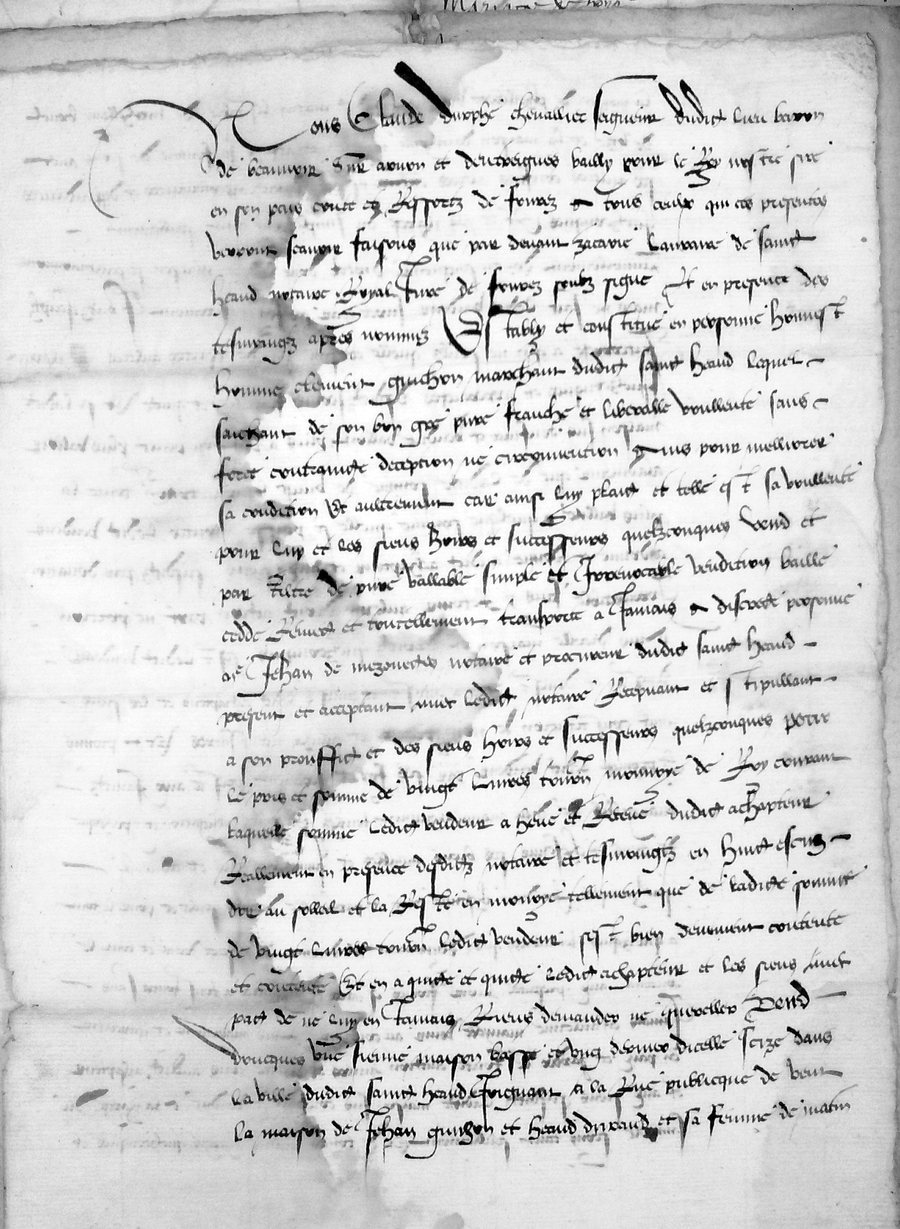 Mariage de
Nous Claude Durphé chevallier seigneur dudit lieu baron
de beauvoir sur arnon et dentreigues bailly pour le Roy nostre sire
en son pais conté et Ressortz de fourez A tous ceulx qui ces presentes
verront scavoir faisons que par devant zacarie de sainct
heaud notaire Royal Juré de fourez soubz signé Et en presence des
tesmoingz apres nommez Estably et constitué en personne honnest
homme clement guichon marchant dudict sainct heaud lequel
saichant de son bon gré pure franche et liberalle voullenté sans
force contraincte deception ne circonvention Ains pour melliorer
sa condition Et aultrement car ainsi luy plaict et telle est sa voullenté
pour luy et les siens hoirs et successeurs quelzconques vend et
par tiltre de pure vallable simple et Irrevocable vendition baille
cedde Remect et transporte a Jamais A discrete personne
Me Jehan de mezonectes notaire et procureur dudict sainct heaud
present et acceptant avec ledict notaire Recepvant et stipullant
a son prouffict et des siens hoirs et successeurs quelzconques pour
le pris et somme de vingt livres tournois monnoye de Roy courant
laquelle somme ledict vendeur a heue et Receue dudict achapteur
Reallement en presence desdictz notaire et tesmoingtz en huict escuz
dor au solleil et la Reste en monnoye tellement que de ladicte somme
de vingt livres tournois ledict vendeur sest bien deuement contenté
et contente Et en a quicté et quicte ledict achapteur et les siens avec
pact de ne luy en Jamais Riens demander ne quereller Vend
doncques une sienne maison basse et ung derrier dicelle size dans
la ville dudict sainct heaud Joignant a la Rue publicque de vent
la maison de Jehan guichon et heaud durand et sa femme de matin